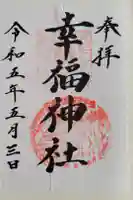 奉拝
幸福神社
令和五年五月三日